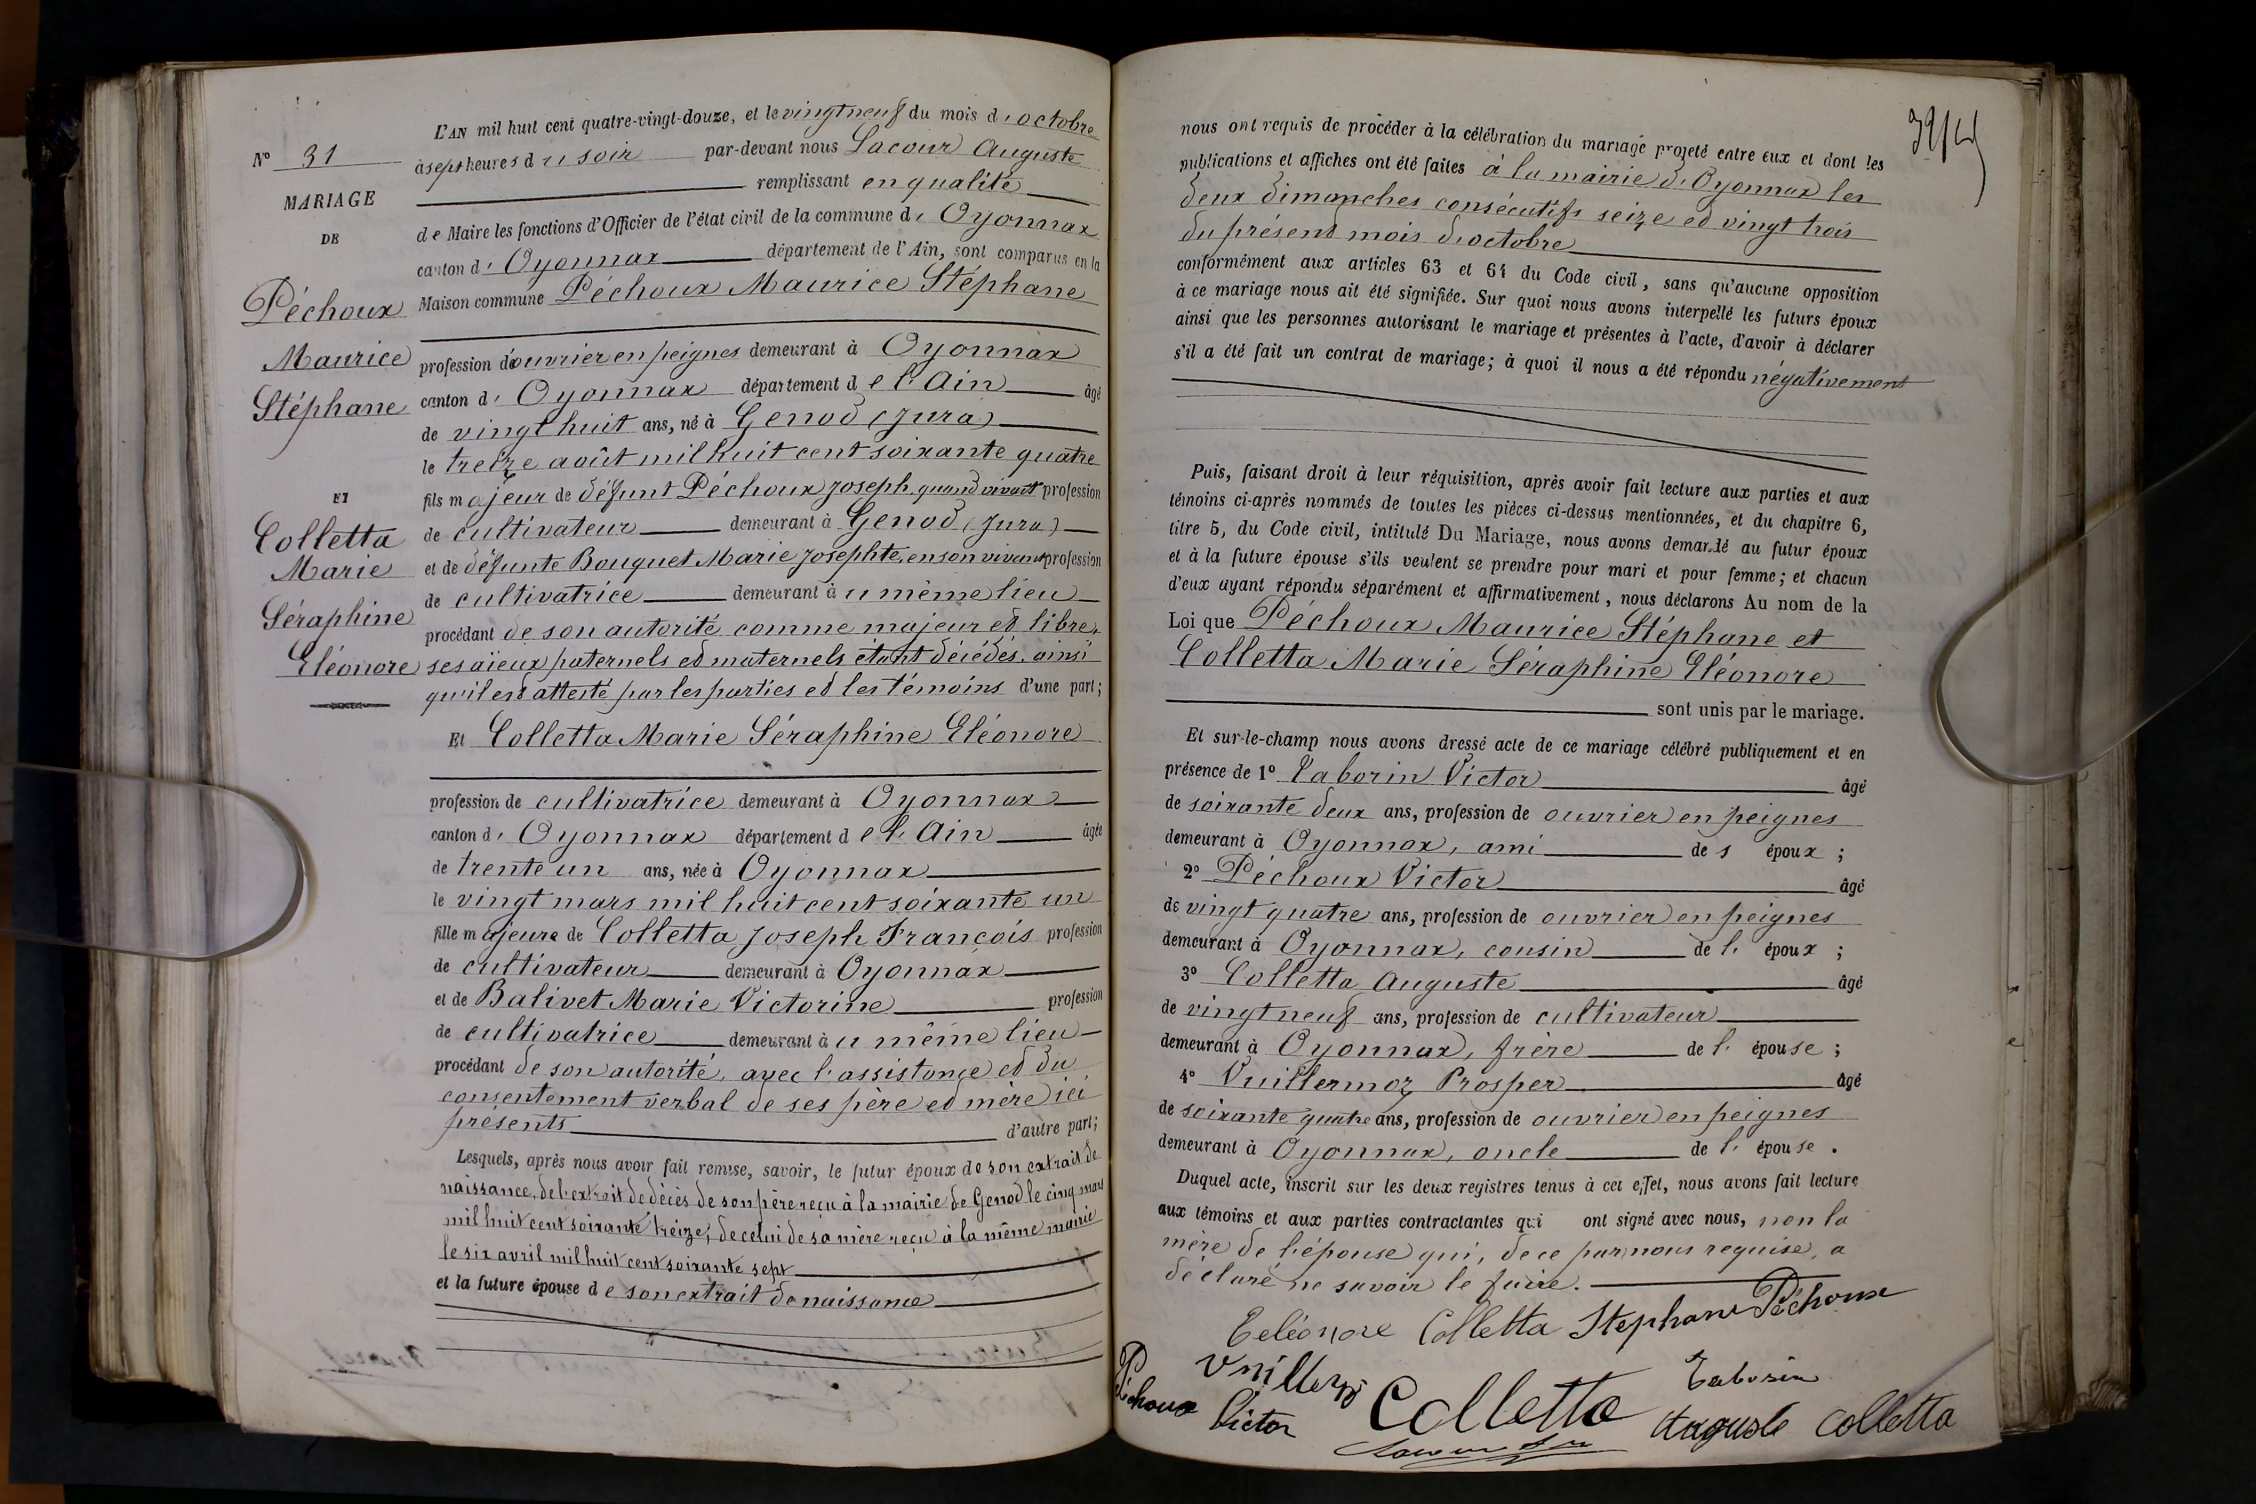 N° 31
MARIAGE
DE
Péchoux
Maurice
Stéphane
ET
Colletta
Marie
Séraphine
Eléonore
L'AN mil huit cent quatre-vingt-douze, et le vingt neuf du mois d'octobre
à sept heures du soir par-devant nous Lacour Auguste
remplissant en qualité
de Maire les fonctions d'Officier de l'état civil de la commune d'Oyonnax
canton d'Oyonnax département de l'Ain, sont comparus en la
Maison commune Péchoux Maurice Stéphane
profession d'ouvrier en peignes demeurant à Oyonnax
canton d'Oyonnax département de l'Ain âgé
de vingt huit ans, né à Genod (Jura)
le treize août mil huit cent soixante quatre
fils majeur de défunt Péchoux Joseph, quand vivait profession
de cultivateur demeurant à Genod (Jura)
et de défunte Bouquet Marie Josephte, en son vivant profession
de cultivatrice demeurant au même lieu
procédant de son autorité comme majeur et libre,
ses aïeux paternels et maternels étant décédés, ainsi
qu'il est attesté par les parties et les témoins d'une part;
Et Colletta Marie Séraphine Eléonore
profession de cultivatrice demeurant à Oyonnax
canton d'Oyonnax département de l'Ain âgée
de trente un ans, née à Oyonnax
le vingt mars mil huit cent soixante un
fille majeure de Colletta Joseph François profession
de cultivateur demeurant à Oyonnax
et de Balivet Marie Victorine profession
de cultivatrice demeurant au même lieu
procédant de son autorité, avec l'assistance et du
consentement verbal de ses père et mère ici
présents d'autre part;
Lesquels, après nous avoir fait remise, savoir, le futur époux de son extrait de
naissance, de l'extrait de décès de son père reçu à la mairie de Genod le cinq mars
mil huit cent soixante treize, de celui de sa mère reçu à la même mairie
le six avril mil huit cent soixante sept
et la future épouse de son extrait de naissance
nous ont requis de procéder à la célébration du mariage projeté entre eux et dont les
publications et affiches ont été faites à la mairie d'Oyonnax les
deux dimanches consécutifs seize et vingt trois
du présent mois d'octobre
conformément aux articles 63 et 64 du Code civil, sans qu'aucune opposition
à ce mariage nous ait été signifiée. Sur quoi nous avons interpellé les futurs époux
ainsi que les personnes autorisant le mariage et présentes à l'acte, d'avoir à déclarer
s'il a été fait un contrat de mariage; à quoi il nous a été répondu négativement
Puis, faisant droit à leur réquisition, après avoir fait lecture aux parties et aux
témoins ci-après nommés de toutes les pièces ci-dessus mentionnées, et du chapitre 6,
titre 5, du Code civil, intitulé Du Mariage, nous avons demandé au futur époux
et à la future épouse s'ils veulent se prendre pour mari et pour femme; et chacun
d'eux ayant répondu séparément et affirmativement, nous déclarons Au nom de la
Loi que Péchoux Maurice Stéphane et
Colletta Marie Séraphine Eléonore
sont unis par le mariage.
Et sur-le-champ nous avons dressé acte de ce mariage célébré publiquement et en
présence de 1° Taborin Victor âgé
de soixante deux ans, profession de ouvrier en peignes
demeurant à Oyonnax, ami des époux ;
2° Péchoux Victor âgé
de vingt quatre ans, profession de ouvrier en peignes
demeurant à Oyonnax, cousin de l'époux ;
3° Colletta Auguste âgé
de vingt neuf ans, profession de cultivateur
demeurant à Oyonnax, frère de l'épouse ;
4° Vuillermoz Prosper âgé
de soixante quatre ans, profession de ouvrier en peignes
demeurant à Oyonnax, oncle de l'épouse .
Duquel acte, inscrit sur les deux registres tenus à cet effet, nous avons fait lecture
aux témoins et aux parties contractantes qui ont signé avec nous, non la
mère de l'épouse qui, de ce par nous requise, a
déclaré ne savoir le faire.
Eeléonore Colletta Stephane Péchoux
Péchoux Victor
Colletta
Taborin
Auguste Colletta